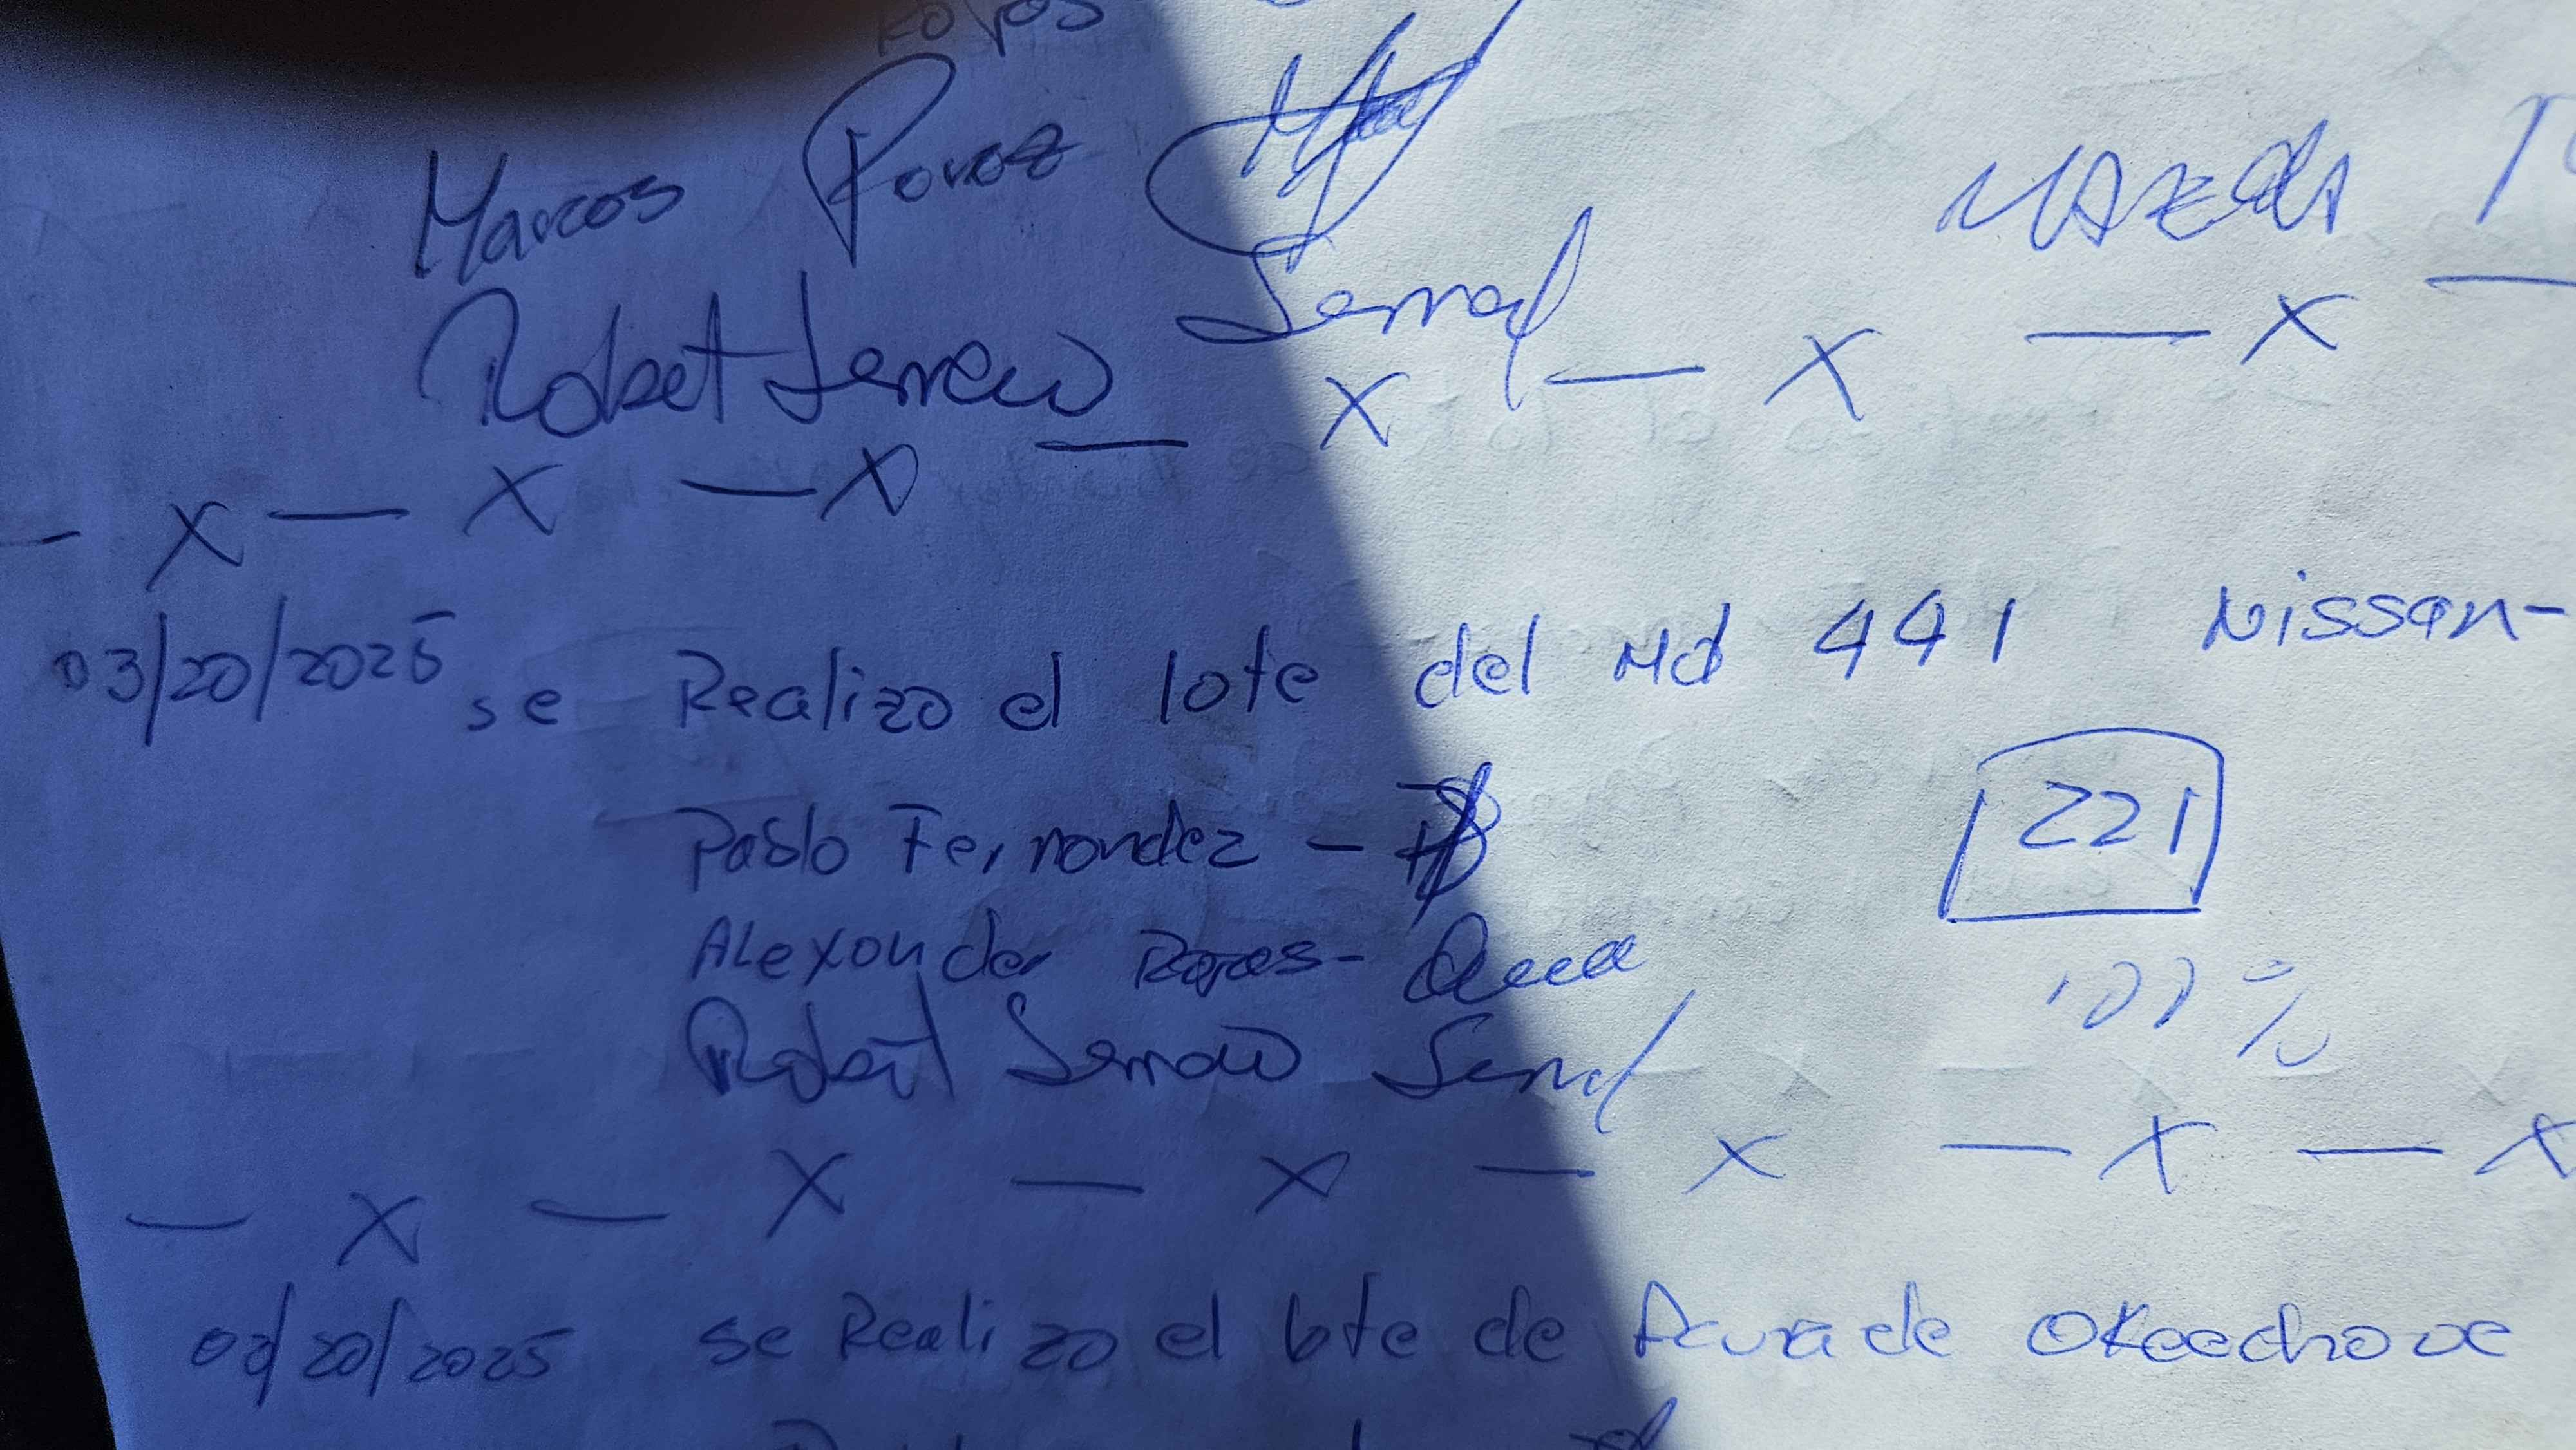 Rojas
Marcos Perez
MAZDA
Robert Serrano
— X — X — X — X — X — X —
03/20/2025 se Realizo el lote del Md 441 Nissan-
Pablo Fernandez -
221
Alexander Rojas-
100%
Robert Serrano
— X — X — X — X — X — X
03/20/2025 se Realizo el lote de Acura de Okeechove